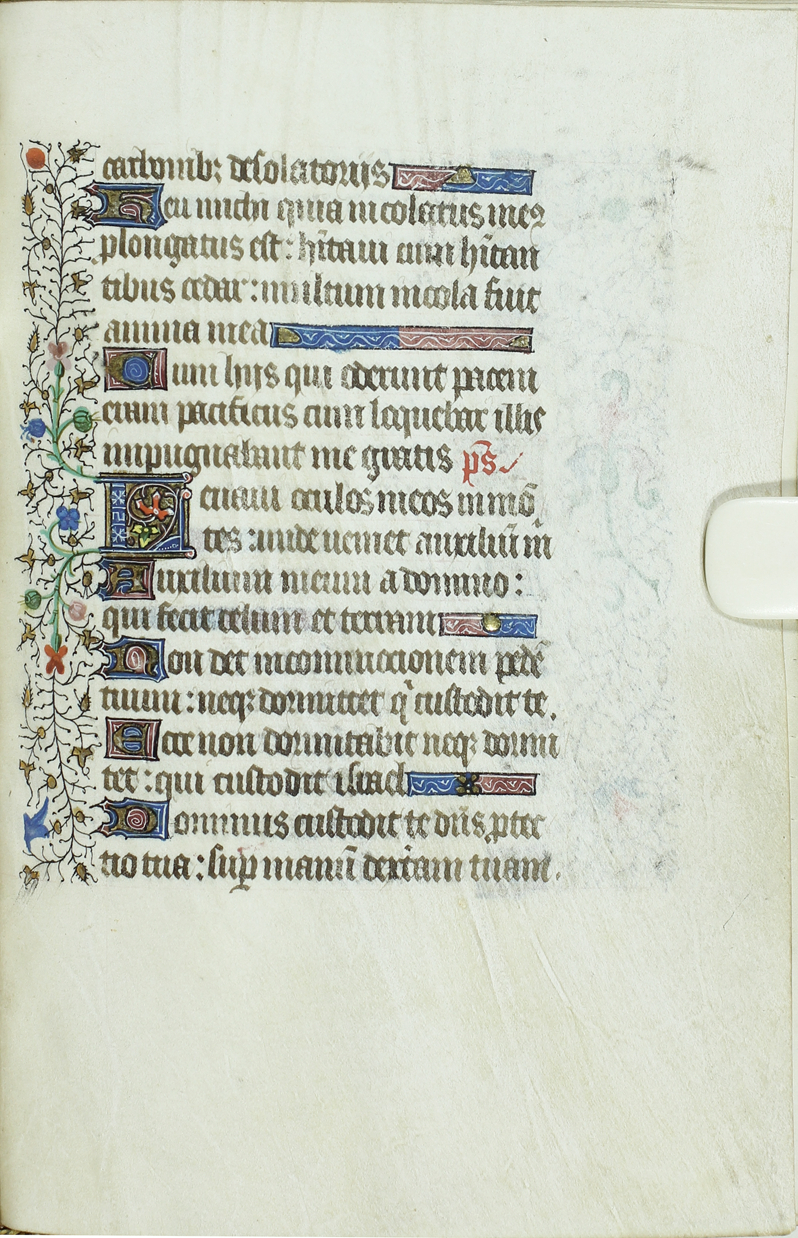 carbonib; desolatorijs
Heu michi quia incolatus meꝰ
ꝓlongatus est : hītaui cum hītan
tibus cedar : multum incola fuit
anima mea
Cum hijs qui oderunt pacem
eram pacificus cum loquebar illis
impugnabant me gratis p̄s
Leuaui oculos meos in mō
tes : unde ueniet auxiliū m̄
Auxilium meum a domino :
qui fecit celum et terram
Non det in commocionem pedē
tuum : neqꝫ dormitet q̄ custodit te.
Ecce non dormitabit neqꝫ dormi
et : qui custodit israel
Dominus custodit te dn̄s ꝓtec
tio tua : suꝑ manū dextram tuam.